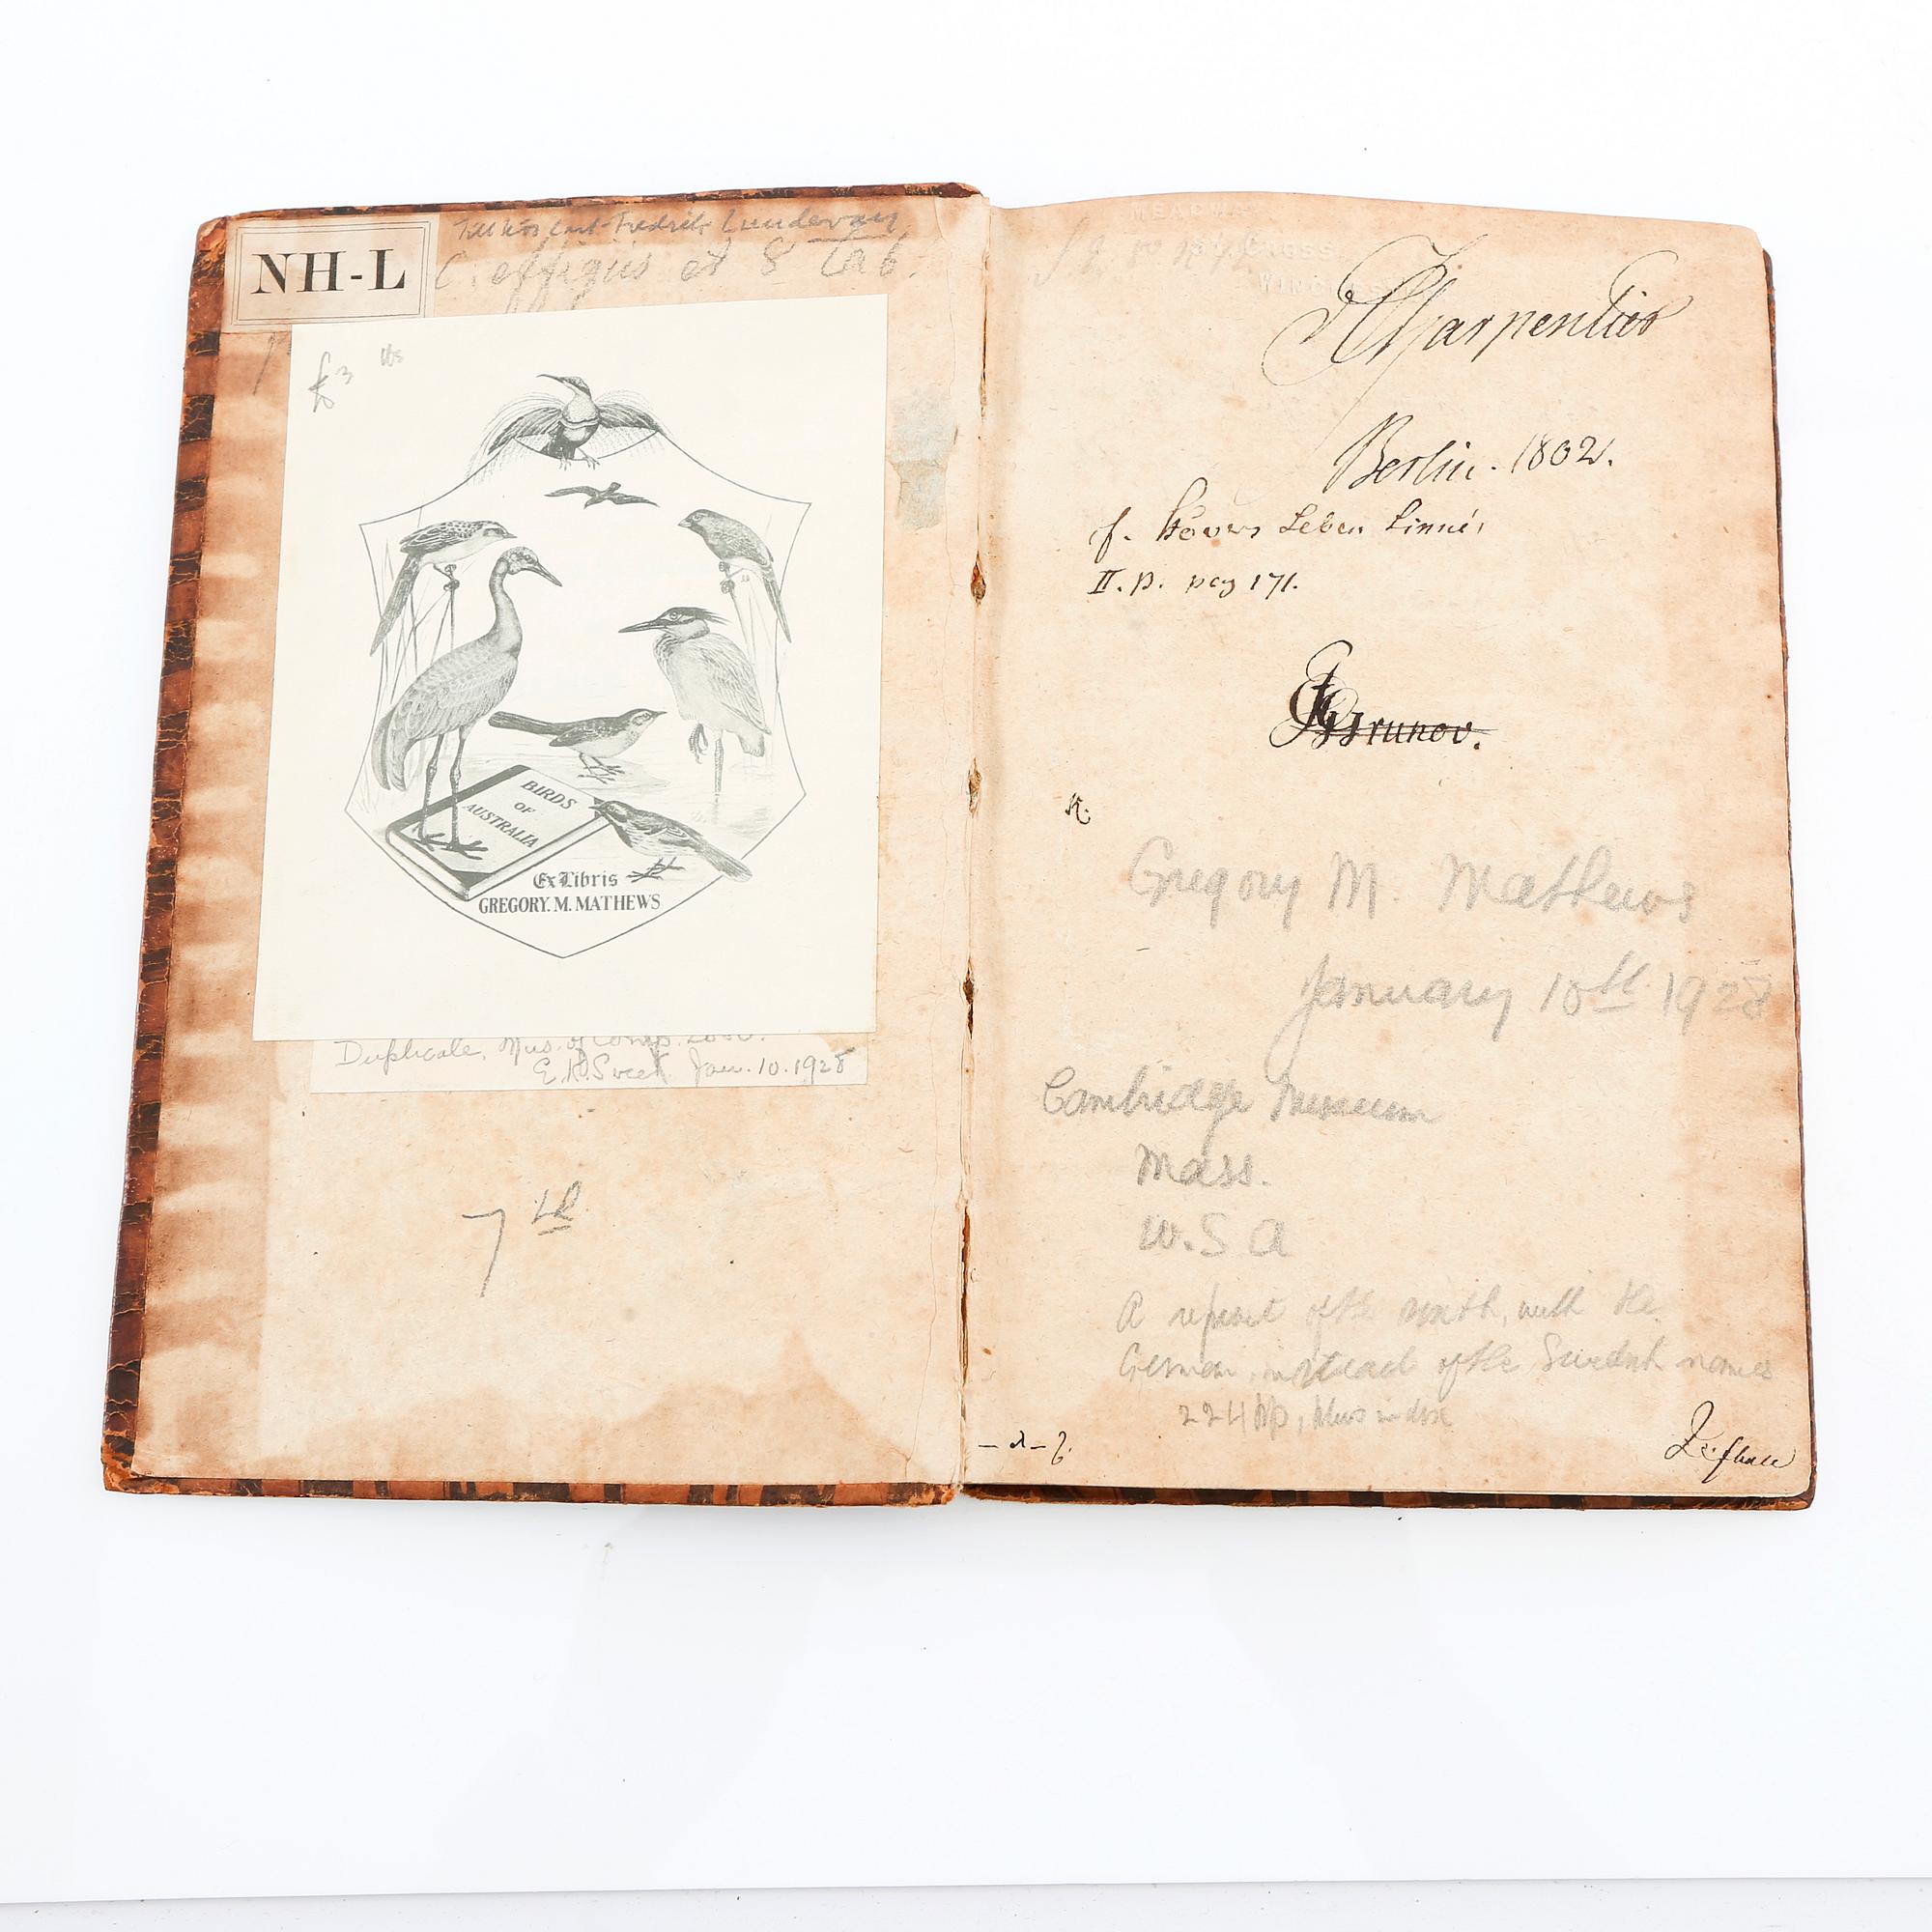 NH-L
Carl-Fredrik Lundevall
C. effigies et 8 tab.
£3
BIRDS
OF
AUSTRALIA
Ex Libris
GREGORY. M. MATHEWS
Duplicate, Mus. of Comp. Zool.
Jan. 10. 1928
7
MEADWAY
CROSS
WINCHESTER
Charpentier
Berlin. 1802.
f. Stövers Leben Linné,
II. p. pag 171.
Brunov.
Gregory M. Mathews
January 10th 1928
Cambridge Museum
Mass.
U.S A
A reprint of the tenth, with the
German, instead of the Swedish names
224 pp, plus index